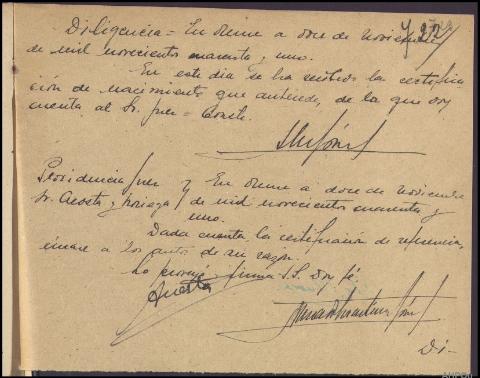 22
Diligencia = En Orense a doce de Noviembre
de mil novecientos cuarenta y uno.
En este dia se ha recibido la certifica
ción de nacimiento que antecede, de la que doy
cuenta al Sr. Juez = Conste.
Providencia Juez
Sr. Acosta y
En Orense a doce de Noviembre
de mil novecientos cuarenta y
uno.
Dada cuenta, la certificación de referencia,
únase a los autos de su razón.
Lo proveyó y firma S.S. Doy fé.
Acosta
Di-